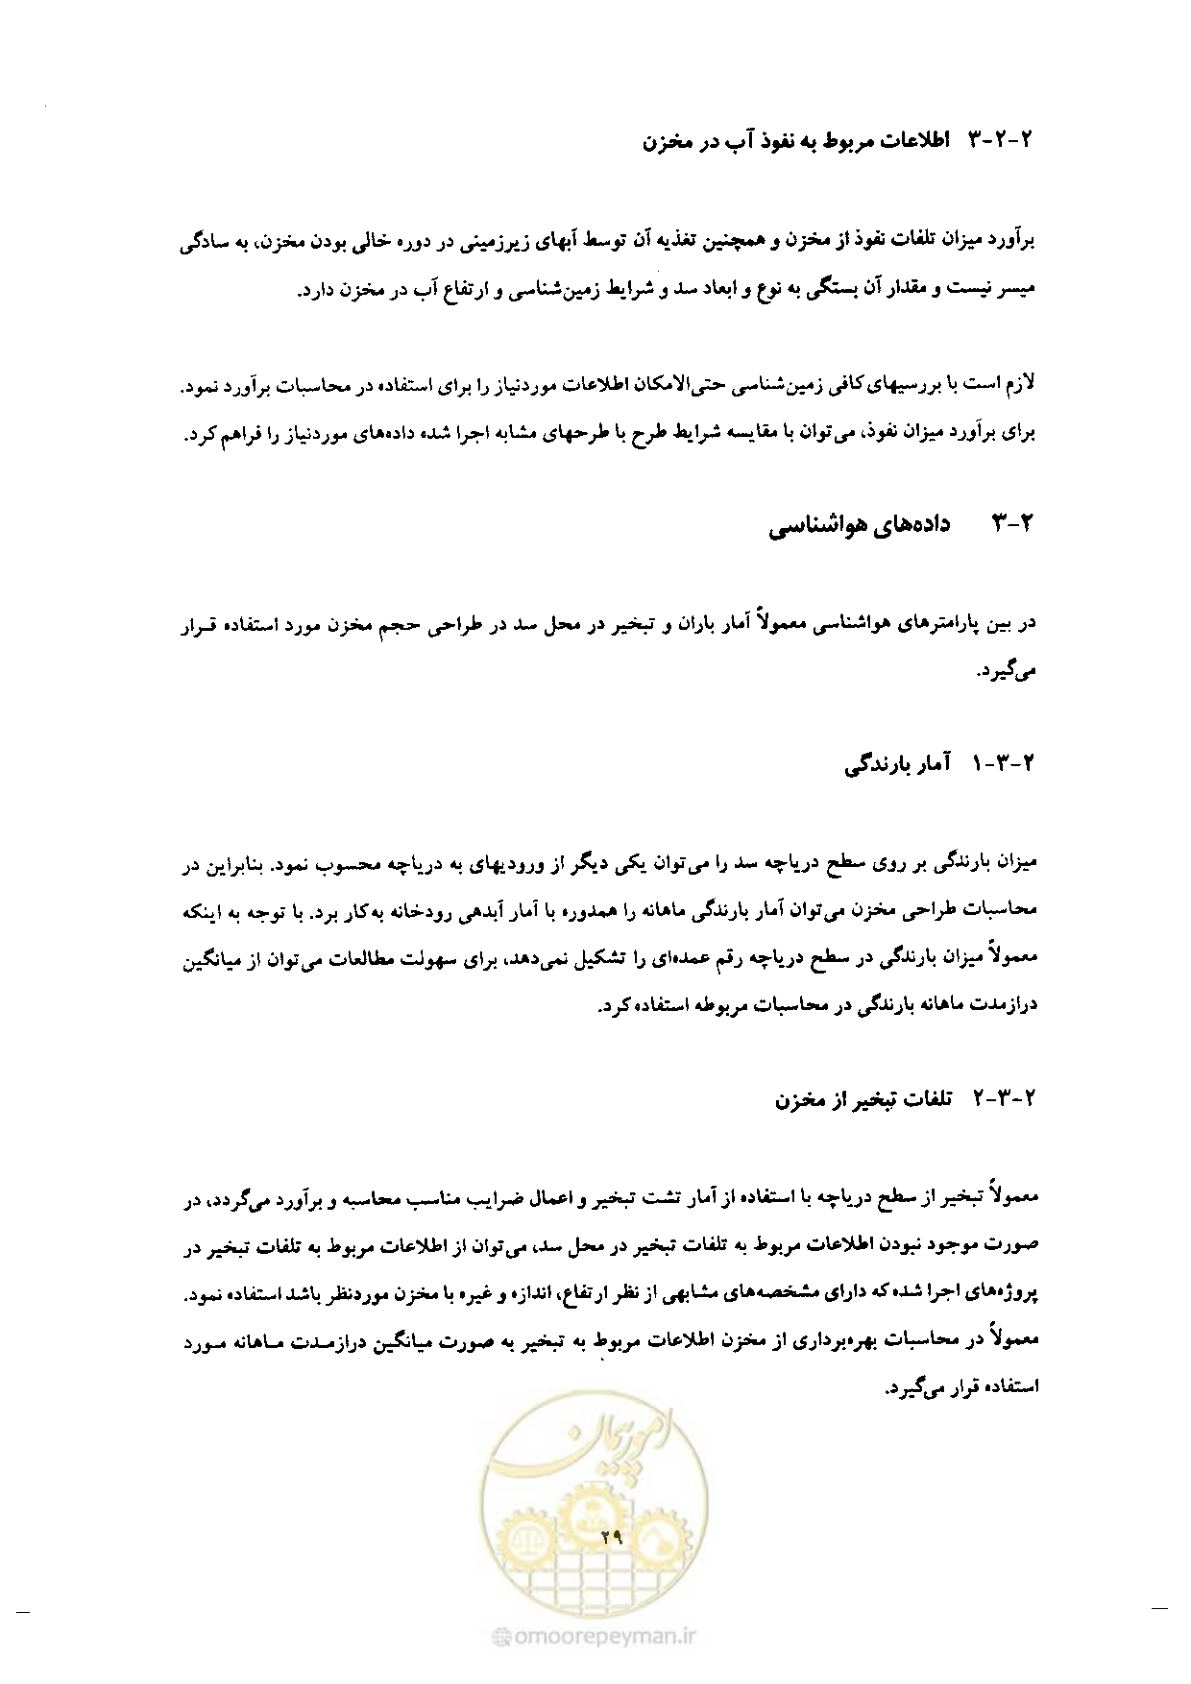 ۲-۲-۳ اطلاعات مربوط به نفوذ آب در مخزن
برآورد میزان تلفات نفوذ از مخزن و همچنین تغذیه آن توسط آبهای زیرزمینی در دوره خالی بودن مخزن، به سادگی
میسر نیست و مقدار آن بستگی به نوع و ابعاد سد و شرایط زمین‌شناسی و ارتفاع آب در مخزن دارد.
لازم است با بررسیهای کافی زمین‌شناسی حتی‌الامکان اطلاعات موردنیاز را برای استفاده در محاسبات برآورد نمود.
برای برآورد میزان نفوذ، می‌توان با مقایسه شرایط طرح با طرحهای مشابه اجرا شده داده‌های موردنیاز را فراهم کرد.
۲-۳ داده‌های هواشناسی
در بین پارامترهای هواشناسی معمولاً آمار باران و تبخیر در محل سد در طراحی حجم مخزن مورد استفاده قرار
می‌گیرد.
۲-۳-۱ آمار بارندگی
میزان بارندگی بر روی سطح دریاچه سد را می‌توان یکی دیگر از ورودیهای به دریاچه محسوب نمود. بنابراین در
محاسبات طراحی مخزن می‌توان آمار بارندگی ماهانه را همدوره با آمار آبدهی رودخانه به‌کار برد. با توجه به اینکه
معمولاً میزان بارندگی در سطح دریاچه رقم عمده‌ای را تشکیل نمی‌دهد، برای سهولت مطالعات می‌توان از میانگین
درازمدت ماهانه بارندگی در محاسبات مربوطه استفاده کرد.
۲-۳-۲ تلفات تبخیر از مخزن
معمولاً تبخیر از سطح دریاچه با استفاده از آمار تشت تبخیر و اعمال ضرایب مناسب محاسبه و برآورد می‌گردد، در
صورت موجود نبودن اطلاعات مربوط به تلفات تبخیر در محل سد، می‌توان از اطلاعات مربوط به تلفات تبخیر در
پروژه‌های اجرا شده که دارای مشخصه‌های مشابهی از نظر ارتفاع، اندازه و غیره با مخزن موردنظر باشد استفاده نمود.
معمولاً در محاسبات بهره‌برداری از مخزن اطلاعات مربوط به تبخیر به صورت میانگین درازمدت ماهانه مورد
استفاده قرار می‌گیرد.
امور پیمان
۲۹
@omoorepeyman.ir